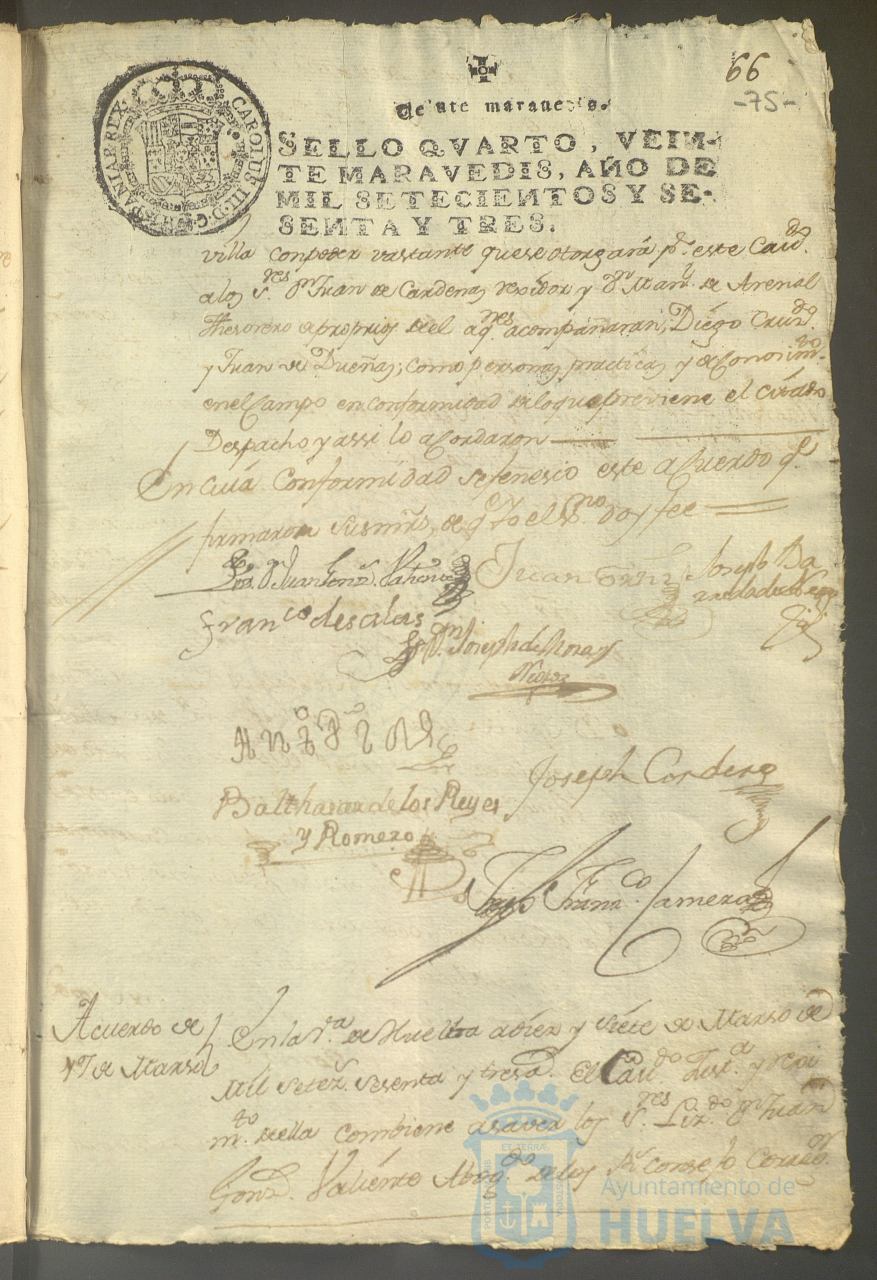 66
-75-
CAROLUS III D G HISPANIAR REX
SELLO QVARTO, VEIN-
TE MARAVEDIS, AÑO DE
MIL SETECIENTOS Y SE-
SENTA Y TRES.
villa con poder vastante que se otorgará pr. este Cavdo.
a los Sres. Dn Juan de Cardenas rexidor y Dn Manl. de Arenal
thesorero de propios del aqnes. acompañaran, Diego Cruzdo.
y Juan de Dueñas, como personas practicas y de Conosimto.
en el Campo en conformidad de lo que previene el citado
Despacho y assi lo acordaron
En cuia Conformidad se fenesio este acuerdo qe.
firmaron sus mrds. de q Yo el Sno. doy fee
Lizdo. Dn Juan Gonz. Valiente
Juan
Joseph Ba
Franco de salas
Dn Joseph de Mora y
Negron
Joseph Cordero
Balthasar de los Reyes
y Romero
Franco. Camera
Acuerdo de
17 de Marso
En la Va. de Huelba a diez y siete de Marso de
Mil setez. sesenta y tres a. El Cavdo. Justa. y reji
mto. de ella combiene a saver los Sres. Lizdo. Dn Juan
Gonz. Valiente Abogdo. de los Rs consejo Corregor.
PORTUS MARIS
ET TERRAE
CUSTODIA
Ayuntamiento de
HUELVA